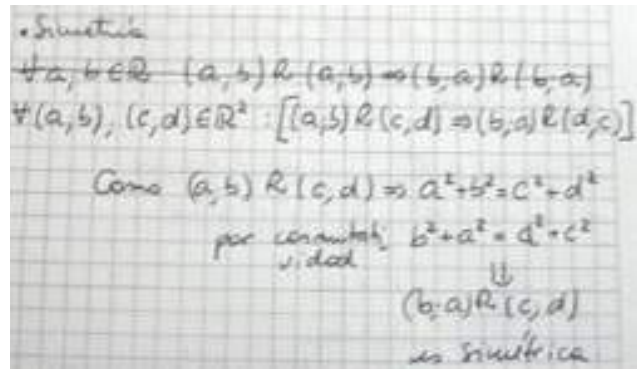 • Simetría
∀a, b ∈ ℝ (a,b) R (a,b) ⇒ (b,a) R (b,a)
∀(a,b), (c,d) ∈ ℝ² : [(a,b) R (c,d) ⇒ (b,a) R (d,c)]
Como (a,b) R (c,d) ⇒ a²+b²=c²+d²
por conmutati b²+a² = d²+c²
vidad
⇓
(b,a) R (c,d)
es simétrica